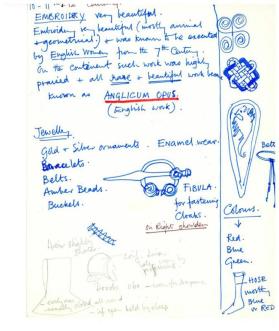 10 - 11
EMBROIDERY very beautiful.
Embroidery very beautiful (mostly animal
+ geometrical) & was known to be executed
by English Women from the 7th Century.
On the continent such work was highly
praised & all rare & beautiful work
known as ANGLICUM OPUS.
(English work)
Jewellry
Gold & Silver ornaments. Enamel wear.
Baracelets.
Belts.
Amber Beads.
Buckels.
FIBULA.
for fastening
Cloaks.
on Right shoulder
Belts
Colours.
Red.
Blue
Green.
HOSE
mostly
BLUE
or RED
Hair slightly
shorter
Hoods also